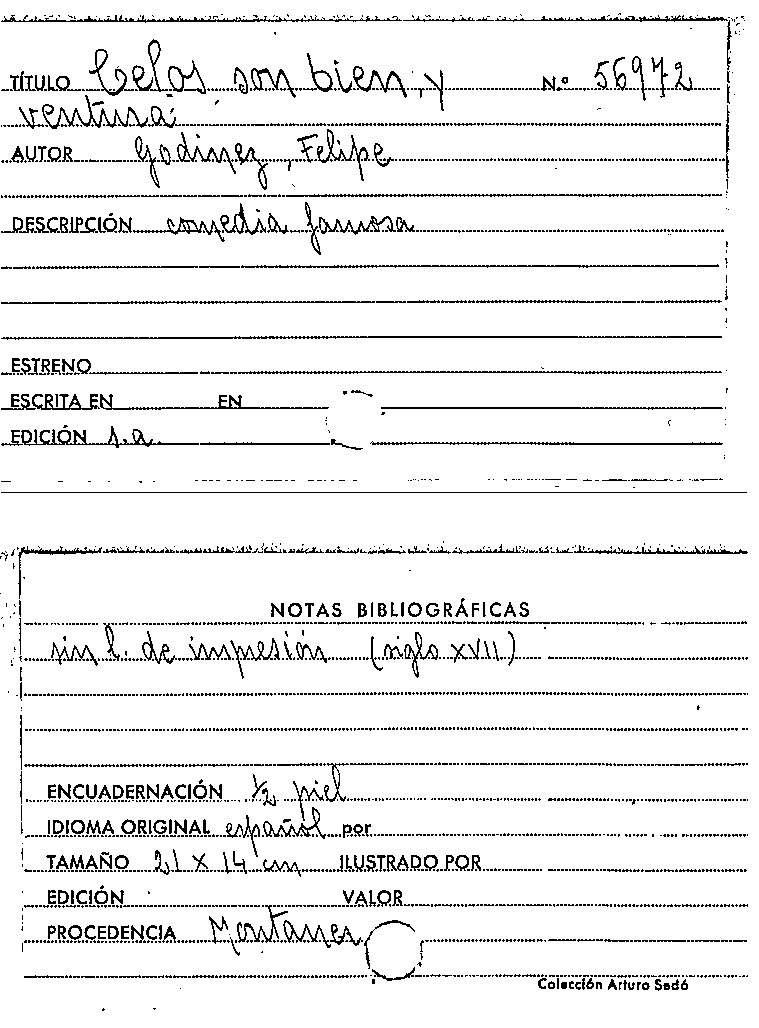 TÍTULO Celos son bien, y N.º 56972
ventura
AUTOR Godinez, Felipe
DESCRIPCIÓN comedia famosa
ESTRENO
ESCRITA EN EN
EDICIÓN s.a.
NOTAS BIBLIOGRÁFICAS
sin l. de impresión (siglo XVII)
ENCUADERNACIÓN ½ piel
IDIOMA ORIGINAL español por
TAMAÑO 21 X 14 cm ILUSTRADO POR
EDICIÓN VALOR
PROCEDENCIA Montaner
Colección Arturo Sedó